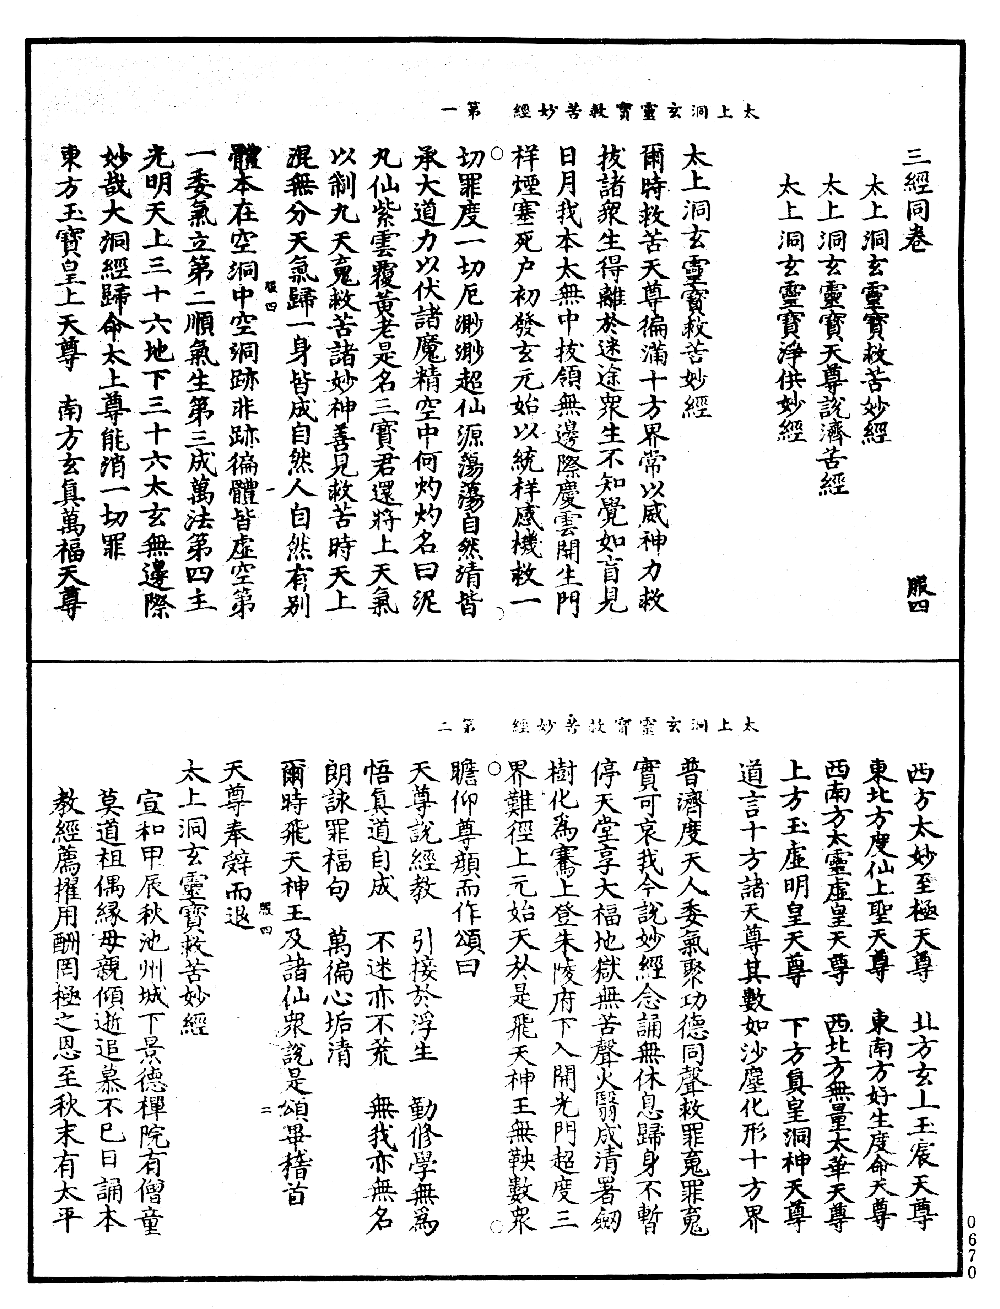 太上洞玄靈寳救苦妙經　第一
三經同卷　服四
太上洞玄靈寳救苦妙經
太上洞玄靈寳天尊說濟苦經
太上洞玄靈寳淨供妙經
太上洞玄靈寳救苦妙經
爾時救苦天尊徧滿十方界常以威神力救
拔諸衆生得離於迷途衆生不知覺如盲見
日月我本太無中拔領無邊際慶雲開生門
祥煙塞死户初發玄元始以統祥感機救一
切罪度一切厄渺渺超仙源蕩蕩自然清皆
承大道力以伏諸魔精空中何灼灼名曰泥
丸仙紫雲覆黃老是名三寳君還將上天氣
以制九天䰟救苦諸妙神善見救苦時天上
混無分天氣歸一身皆成自然人自然有别
體本在空洞中空洞跡非跡徧體皆虛空第
服四　一
一委氣立第二順氣生第三成萬法第四主
光明天上三十六地下三十六太玄無邊際
妙哉大洞經歸命太上尊能消一切罪
東方玉寳皇上天尊　南方玄真萬福天尊
太上洞玄靈寳救苦妙經　第二
西方太妙至極天尊　北方玄上玉宸天尊
東北方度仙上聖天尊　東南方好生度命天尊
西南方太靈虛皇天尊　西北方無量太華天尊
上方玉虛明皇天尊　下方真皇洞神天尊
道言十方諸天尊其數如沙塵化形十方界
普濟度天人委氣聚功德同聲救罪䰟罪䰟
實可哀我今說妙經念誦無休息歸身不暫
停天堂享大福地獄無苦聲火翳成清署劒
樹化爲騫上登朱陵府下入開光門超度三
界難徑上元始天於是飛天神王無鞅數衆
瞻仰尊顏而作頌曰
天尊說經教　引接於浮生　勤修學無爲
悟真道自成　不迷亦不荒　無我亦無名
朗詠罪福句　萬徧心垢清
爾時飛天神王及諸仙衆說是頌畢稽首
天尊奉辭而退
服四　二
太上洞玄靈寳救苦妙經
宣和甲辰秋池州城下景德禪院有僧童
莫道祖偶緣母親傾逝追慕不已日誦本
教經薦擢用酬罔極之恩至秋末有太平
0670